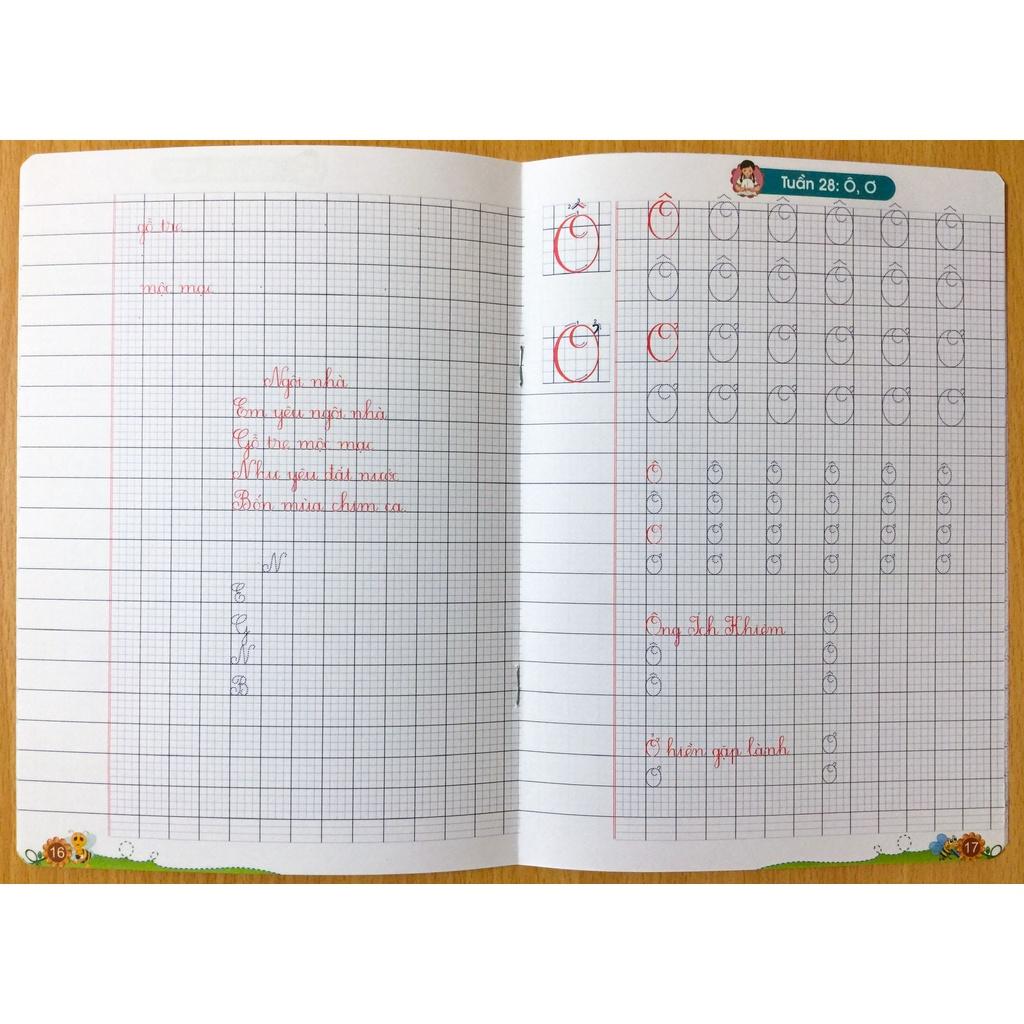 gỗ tre
mộc mạc
Ngôi nhà
Em yêu ngôi nhà
Gỗ tre mộc mạc
Như yêu đất nước
Bốn mùa chim ca.
N
E
G
N
B
16
Tuần 28: Ô, Ơ
Ô Ô Ô Ô Ô Ô Ô
Ô Ô Ô Ô Ô Ô
Ơ Ơ Ơ Ơ Ơ Ơ Ơ
Ơ Ơ Ơ Ơ Ơ Ơ
Ô Ô Ô Ô Ô Ô
Ô Ô Ô Ô Ô Ô
Ơ Ơ Ơ Ơ Ơ Ơ
Ơ Ơ Ơ Ơ Ơ Ơ
Ông Ích Khiêm Ô
Ô Ô
Ô Ô
Ở hiền gặp lành Ơ
Ơ Ơ
17